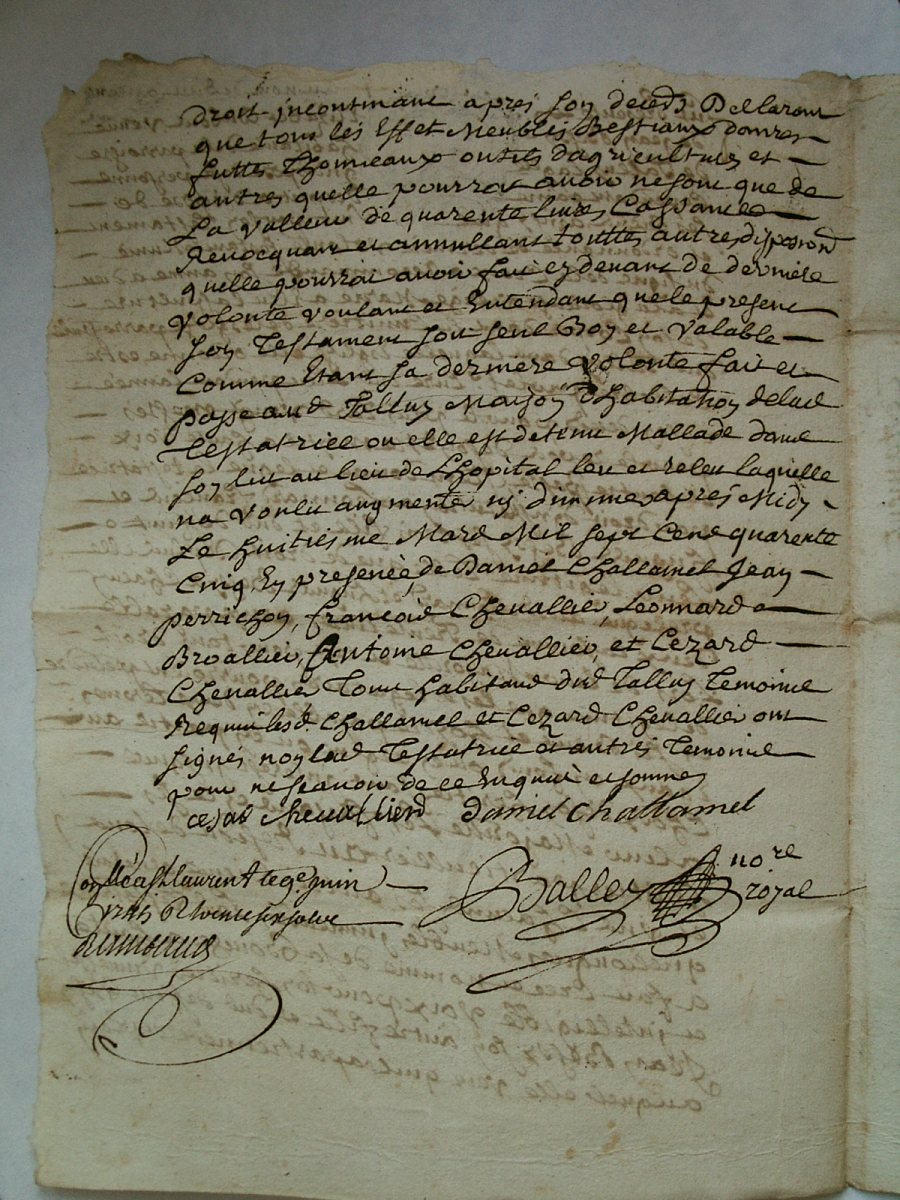 droit incontinant apres son deceds Declarant
que tous les Effet Meubles Bestiaux danrés
futtes Thonneaux outils dagriculture et
autres quelle pourroit avoir ne sont que de
La valleur de quarente livres Cassant
Revocquant et annullant touttes autres disposions
quelle pourroit avoir fait cy devant de derniere
volonte voulant et Entendant que le present
son Testament soit seul Bon et valable
Comme Etant sa derniere volonte fait et
passe aud Tallus Maison d'habitation delad
Testatrice ou elle est detenue Mallade dans
son lit au lieu de Lhopital leu et releu laquelle
na voulu augmenter ni diminuer apres Midy
Le huitiesme Mars Mil sept Cens quarente
Cinq En presence de Daniel Challamel Jean
Perrichon, françois Chevallier, Leonnard
Broallier, Antoine Chevallier, et Cezard
Chevallier Tous habitans dud Tallus Temoins
Requis lesd. Challamel et Cezard Chevallier ont
signés non lad Testatrice et autres Temoins
pour ne scavoir de ce Enquis et sommes
cesar Chevallierd daniel Challamel
Balley nore
royal
St laurent le 9e juin